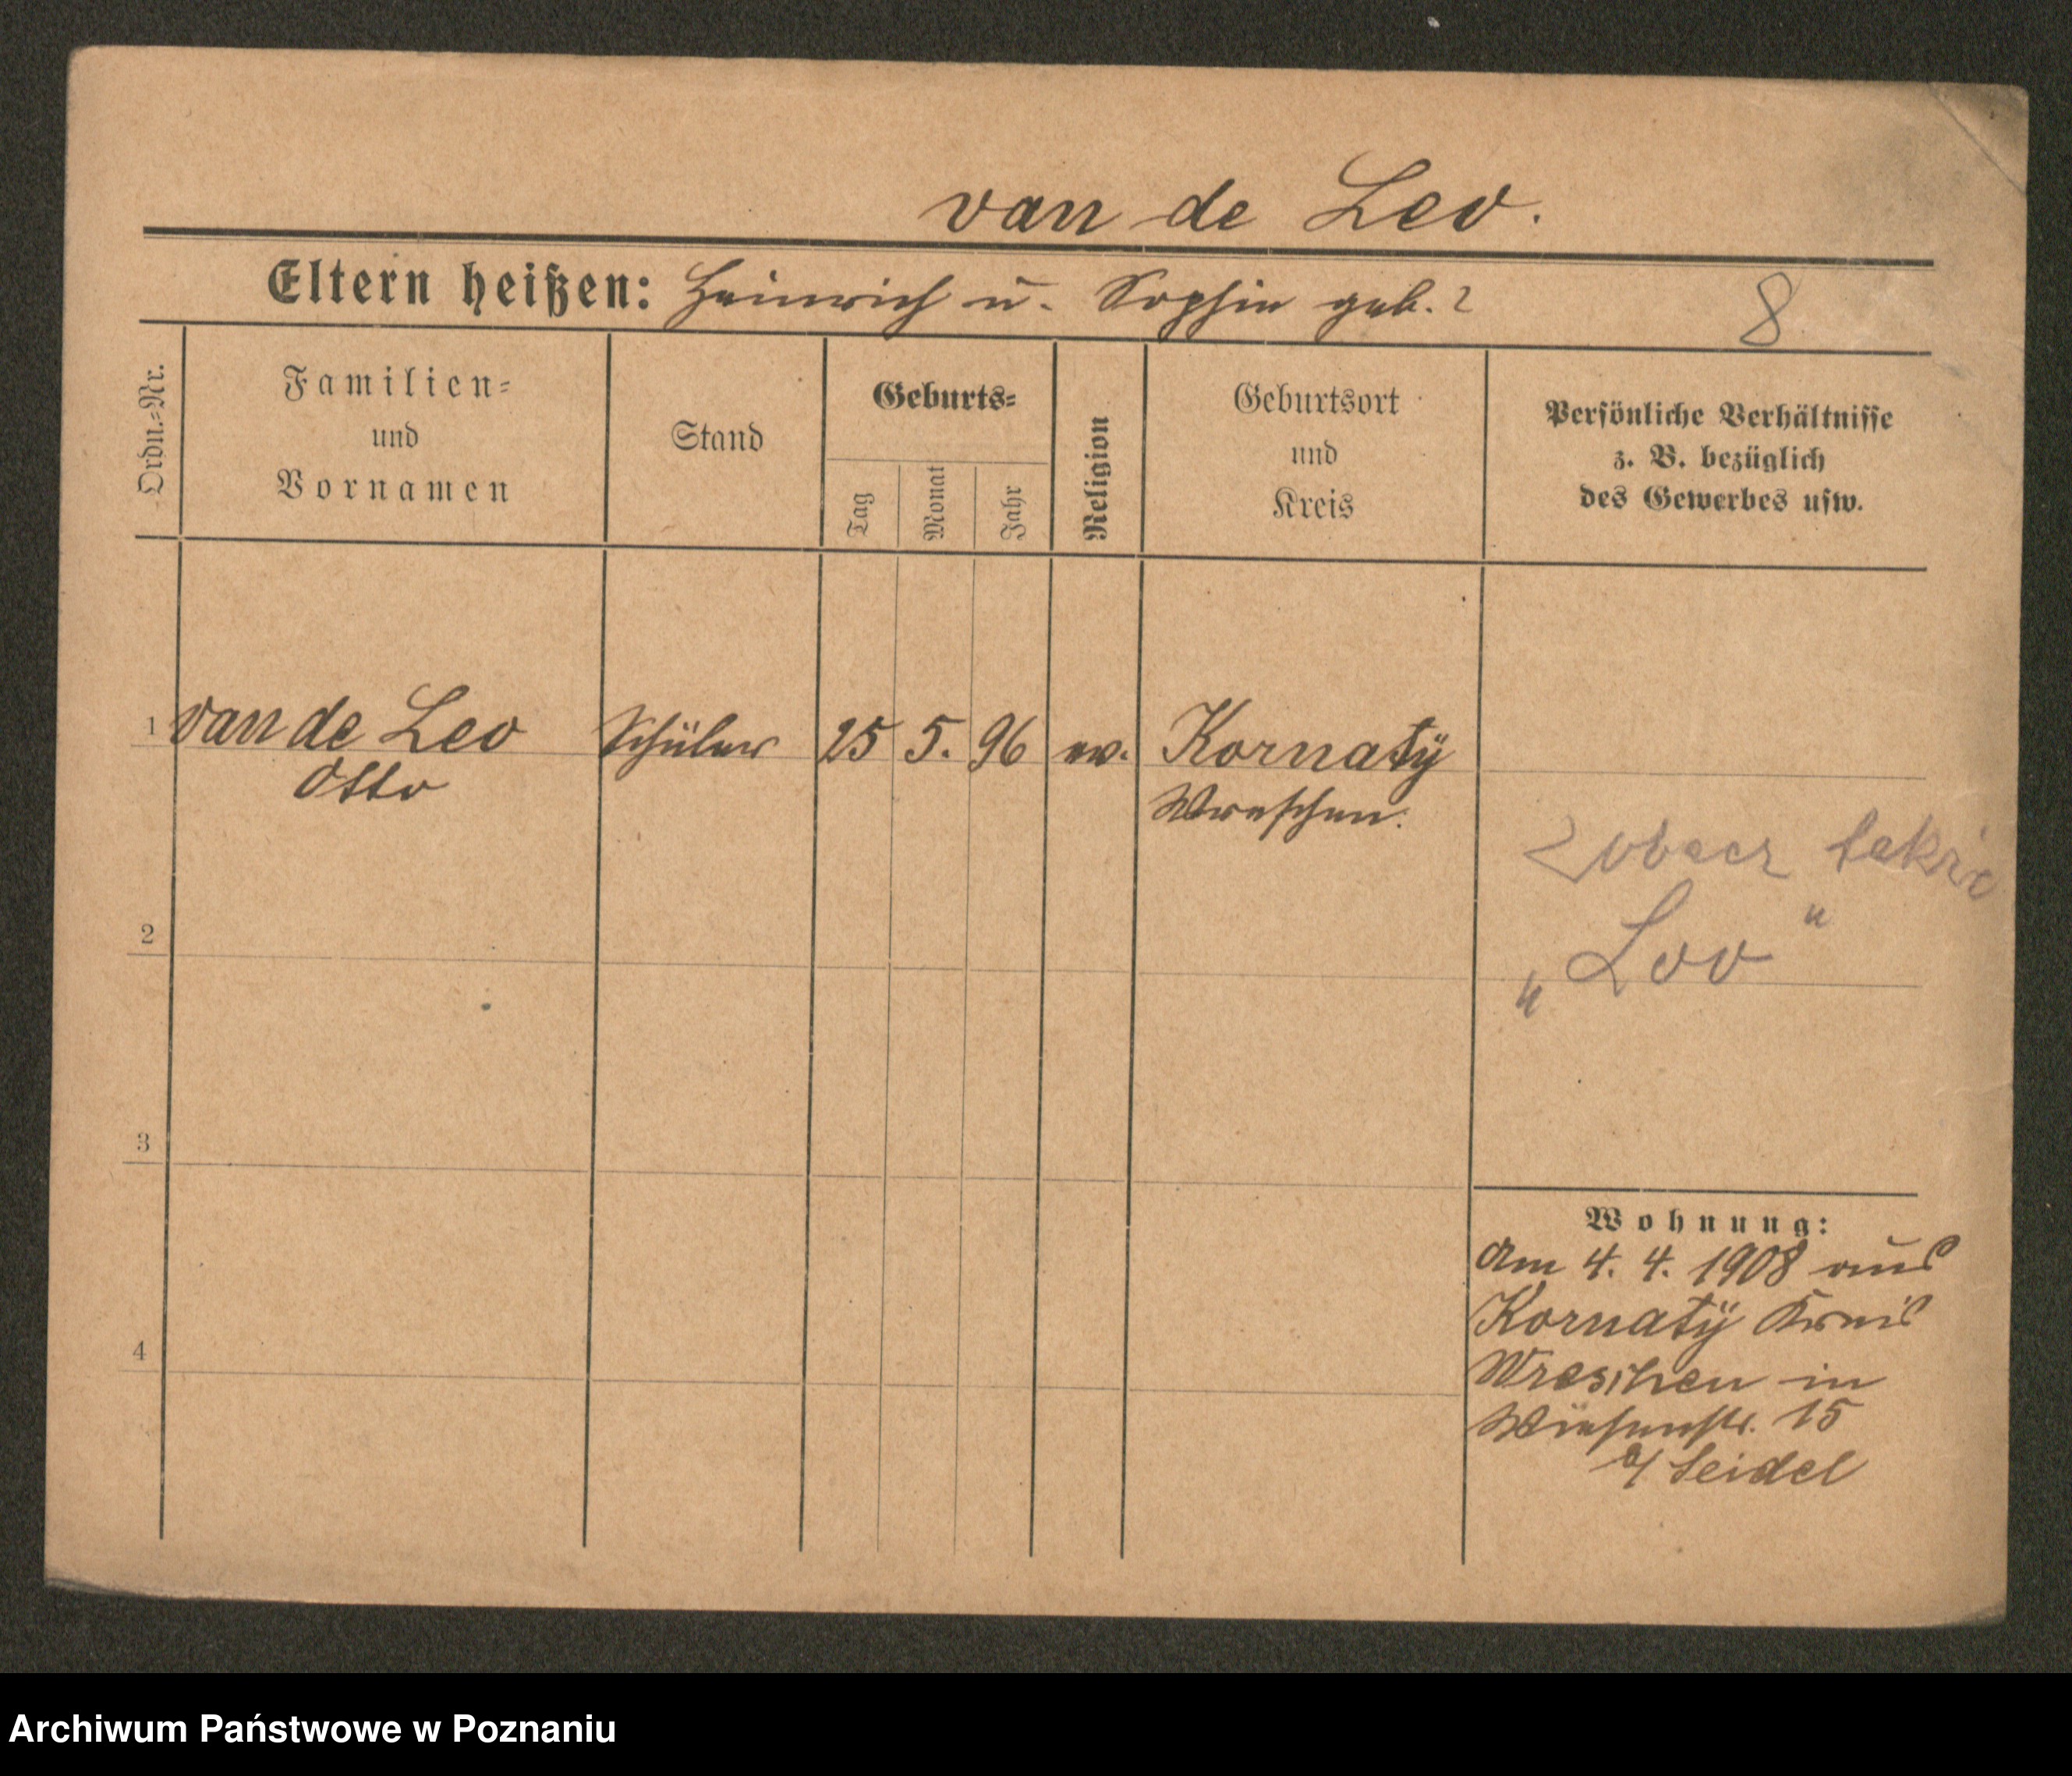 van de Leo.
Eltern heißen: Heinrich u. Sophie geb. ?
8
Ordn.=Nr.
Familien=
und
Vornamen
Stand
Geburts=
Tag
Monat
Jahr
Religion
Geburtsort
und
Kreis
Persönliche Verhältnisse
z. B. bezüglich
des Gewerbes usw.
1 van de Leo Schüler 25 5. 96 ev. Kornatÿ
Otto Wreschen.
Zobacz także
„Loo"
2
3
4
Wohnung:
Am 4. 4. 1908 aus
Kornatÿ Kreis
Wreschen in
Wiesenstr. 15
b/ Seidel
Archiwum Państwowe w Poznaniu